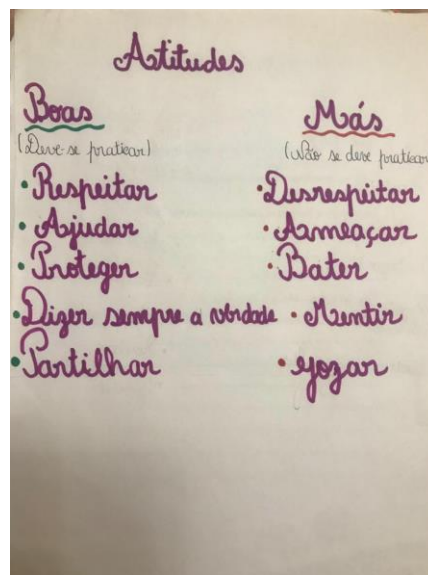 Atitudes
Boas
(Deve-se praticar)
• Respeitar
• Ajudar
• Proteger
• Dizer sempre a verdade
• Partilhar
Más
(Não se deve praticar
• Desrespeitar
• Ameaçar
• Bater
• Mentir
• Gozar